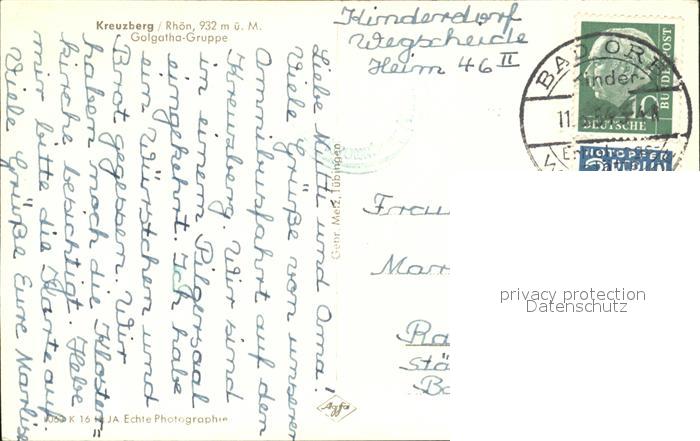 Kreuzberg / Rhön, 932 m ü. M.
Golgatha-Gruppe
Kinderdorf
Wegscheide
Heim 46 II
Liebe Mutti und Oma!
Viele Grüße von unserer
Omnibusfahrt auf den
Kreuzberg. Wir sind
in einem Pilgersaal
eingekehrt. Ich habe
ein Würstchen und
Brot gegessen. Wir
haben noch die Kloster=
kirche besichtigt. Hebe
mir bitte die Karte auf
Viele Grüße Eure Marlise
Gebr. Metz, Tübingen
BAD ORB
Kinder-
11.
DEUTSCHE
BUNDESPOST
10
NOTOPFER
Frau
Marr
Ra
stä
Ba
privacy protection
Datenschutz
K 16
JA. Echte Photographie
Agfa